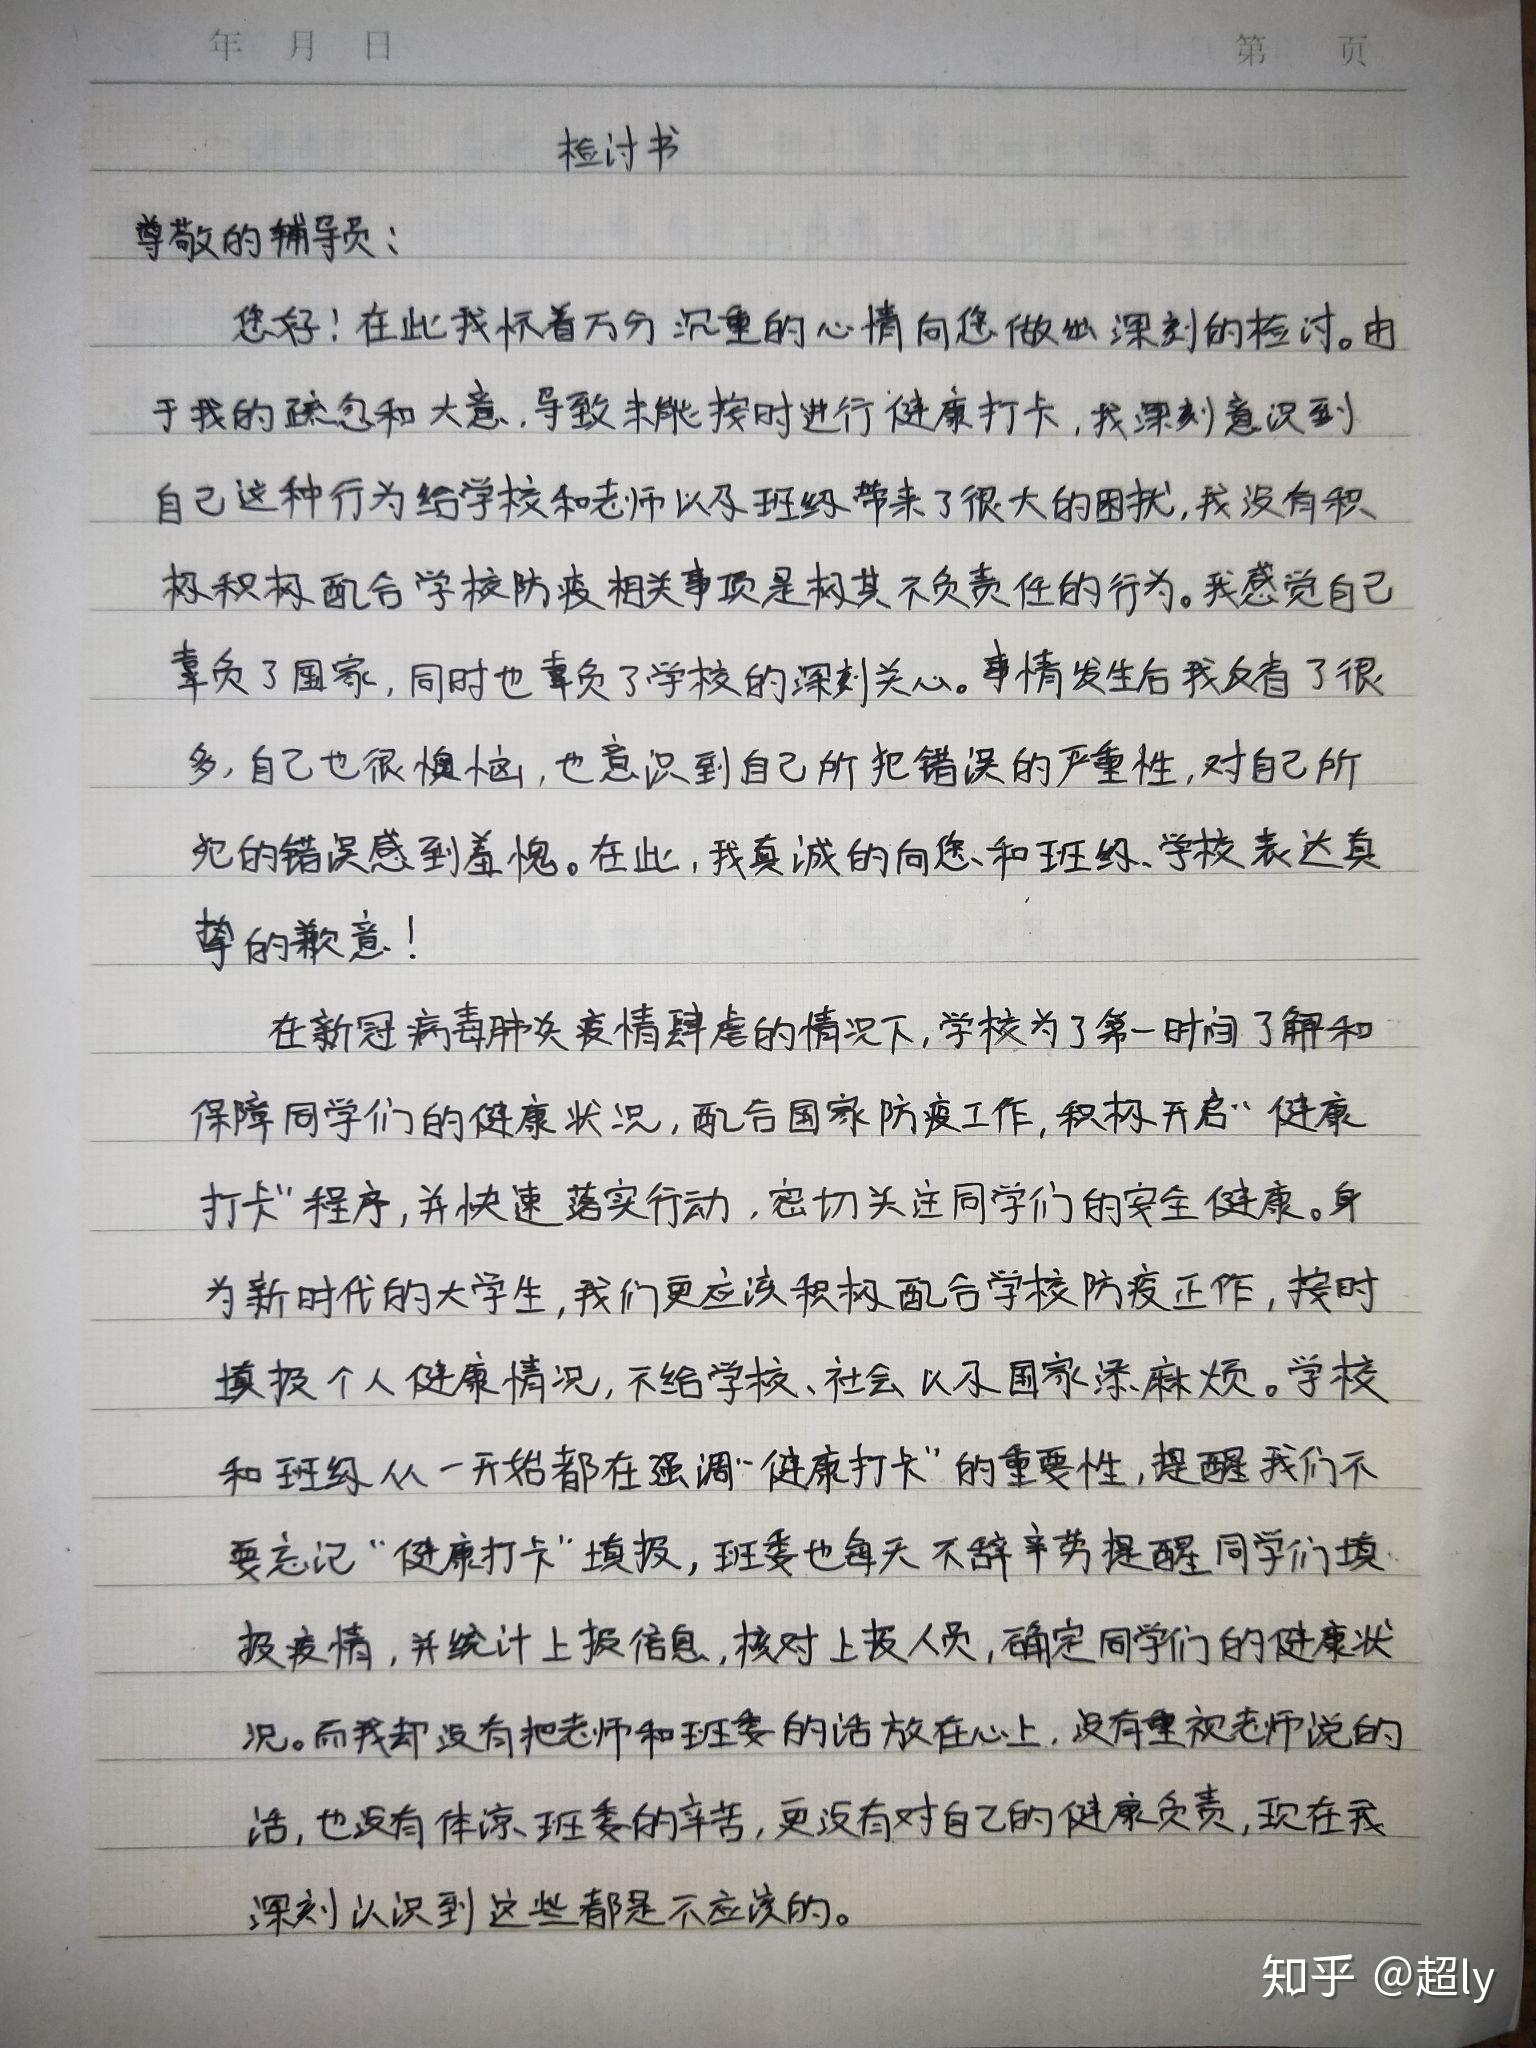 年 月 日 第 页
检讨书
尊敬的辅导员：
您好！在此我怀着万分沉重的心情向您做出深刻的检讨。由
于我的疏忽和大意，导致未能按时进行健康打卡，我深刻意识到
自己这种行为给学校和老师以及班级带来了很大的困扰，我没有积
极积极配合学校防疫相关事项是极其不负责任的行为。我感觉自己
辜负了国家，同时也辜负了学校的深刻关心。事情发生后我反省了很
多，自己也很懊恼，也意识到自己所犯错误的严重性，对自己所
犯的错误感到羞愧。在此，我真诚的向您、和班级、学校表达真
挚的歉意！
在新冠病毒肺炎疫情肆虐的情况下，学校为了第一时间了解和
保障同学们的健康状况，配合国家防疫工作，积极开启“健康
打卡”程序，并快速落实行动，密切关注同学们的安全健康。身
为新时代的大学生，我们更应该积极配合学校防疫工作，按时
填报个人健康情况，不给学校、社会以及国家添麻烦。学校
和班级从一开始都在强调“健康打卡”的重要性，提醒我们不
要忘记“健康打卡”填报，班委也每天不辞辛劳提醒同学们填
报疫情，并统计上报信息，核对上报人员，确定同学们的健康状
况。而我却没有把老师和班委的话放在心上，没有重视老师说的
话，也没有体谅、班委的辛苦，更没有对自己的健康负责，现在我
深刻认识到这些都是不应该的。
知乎 @超ly